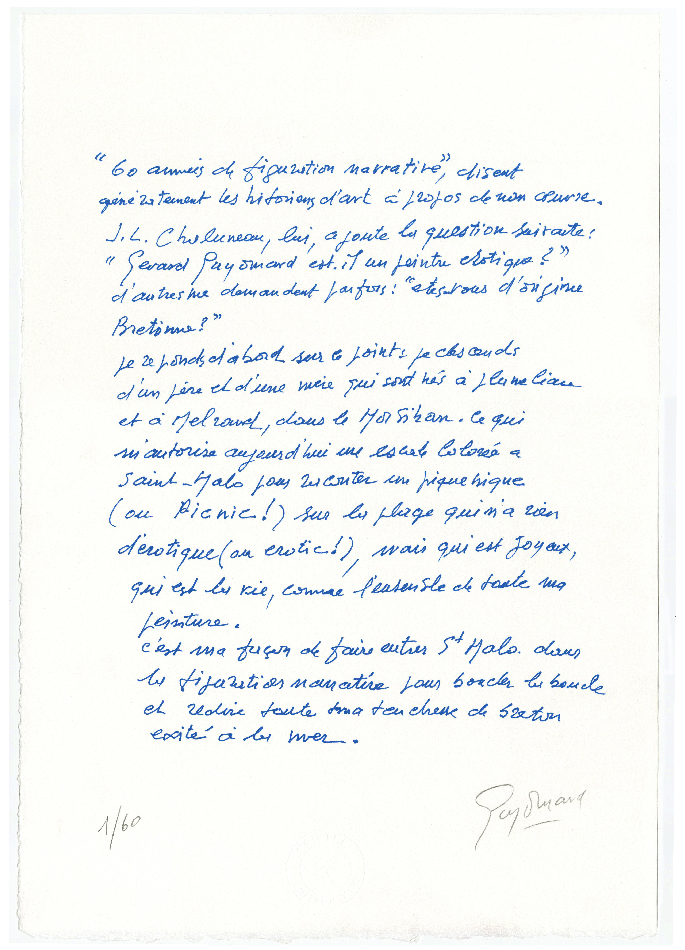 "60 années de figuration narrative", disent
généralement les historiens d'art à propos de mon œuvre.
J.L. Chalumeau, lui, ajoute la question suivante :
"Gérard Guyomard est-il un peintre érotique ?"
d'autres me demandent parfois : "etes-vous d'origine
Bretonne ?"
je réponds d'abord sur ce point : je descends
d'un père et d'une mère qui sont nés à pluméliau
et à Melrand, dans le Morbihan. Ce qui
m'autorise aujourd'hui une escale colorée a
Saint-Malo pour raconter un piquenique
(ou Picnic !) sur la plage qui n'a rien
d'érotique (ou erotic !), mais qui est joyeux,
qui est la vie, comme l'ensemble de toute ma
peinture.
C'est ma façon de faire entrer St Malo dans
la figuration narrative pour boucler la boucle
et redire toute ma tendresse de breton
exité à la mer.
1/60
Guyomard